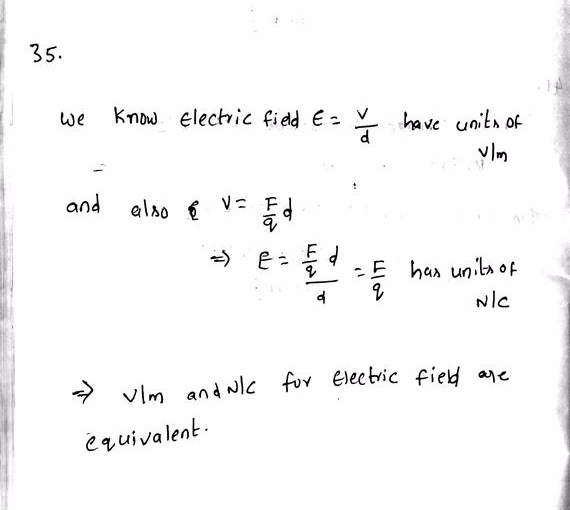 35.
We know electric field E = V/d have units of
V/m
and also V = F/q d
⇒ E = F/q d / d = F/q has units of
N/C
⇒ V/m and N/C for Electric field are
equivalent.